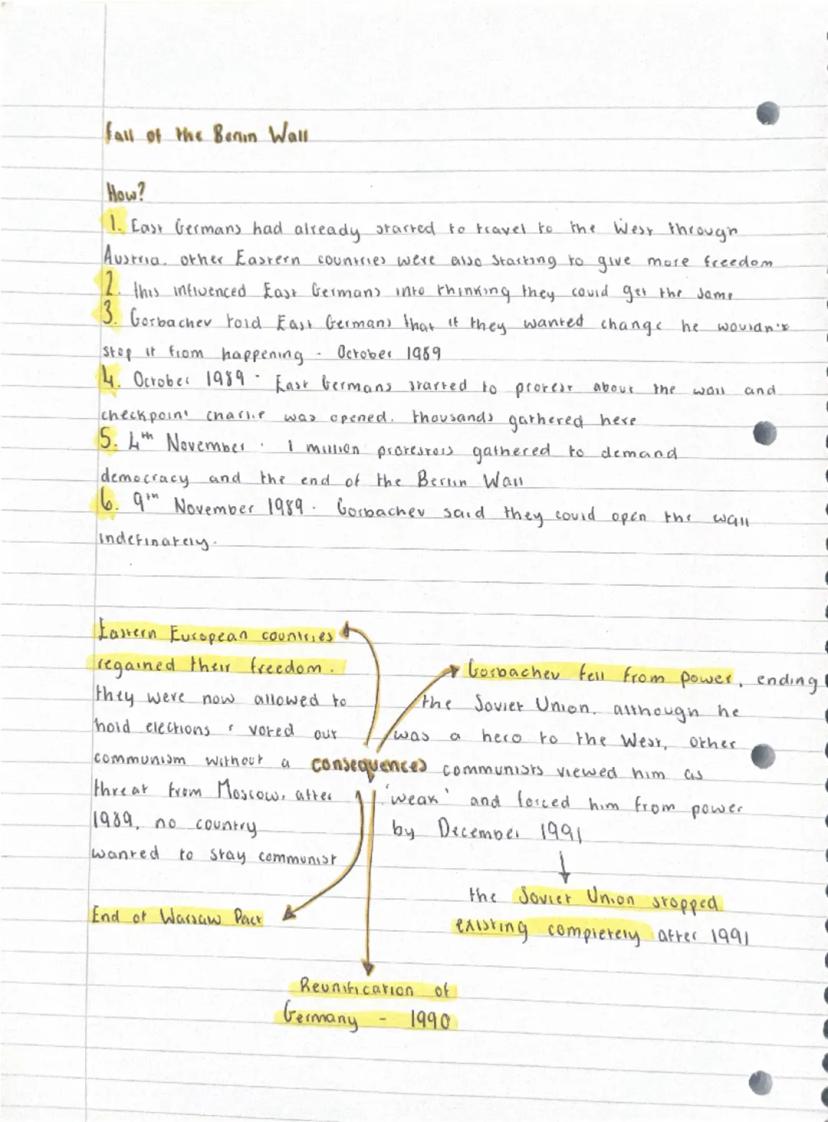 Fall of the Berlin Wall
How?
1. East Germans had already started to travel to the West through
Austria. other Eastern countries were also starting to give more freedom
2. this influenced East Germans into thinking they could get the same
3. Gorbachev told East Germans that if they wanted change he wouldn't
stop it from happening - October 1989
4. October 1989 - East Germans started to protest about the wall and
checkpoint charlie was opened. thousands gathered here
5. 4th November - 1 million protestors gathered to demand
democracy and the end of the Berlin Wall
6. 9th November 1989 - Gorbachev said they could open the wall
indefinately.
Eastern European countries
regained their freedom.
they were now allowed to
hold elections & voted out
communism without a
threat from Moscow. after
1989, no country
wanted to stay communist
Gorbachev fell from power, ending
the Soviet Union. although he
was a hero to the West, other
communists viewed him as
'weak' and forced him from power
by December 1991
consequences
the Soviet Union stopped
existing completely after 1991
End of Warsaw Pact
Reunification of
Germany - 1990